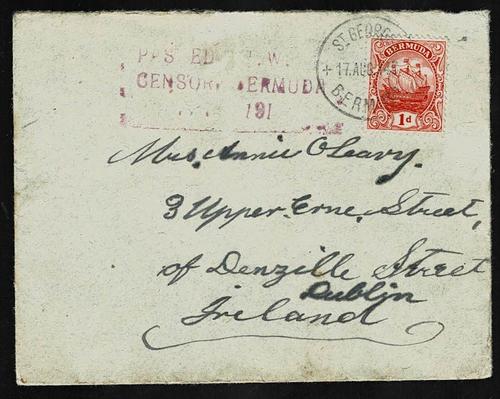 ST GEORGE
+ 17.AUG
BERM
BERMUDA
1d
P SSED W.
CENSOR, BERMUDA
191
Mrs. Annie O'Leary.
3 Upper Erne, Street,
of Denzille Street
Dublin
Ireland